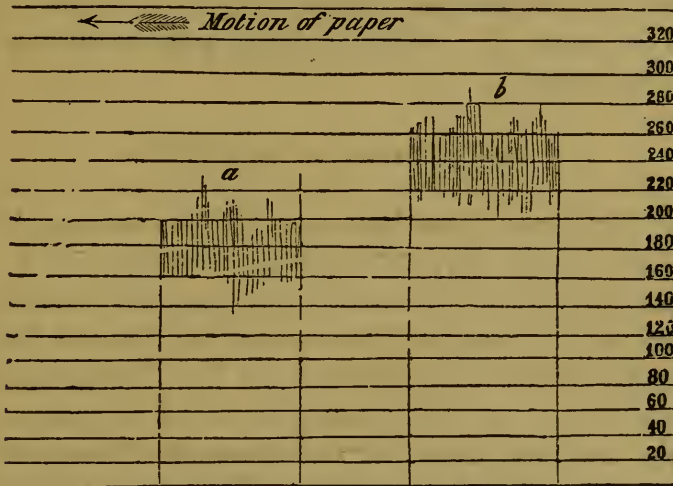 Motion of paper
320
300
280
b
260
240
a
220
200
180
160
140
120
100
80
60
40
20